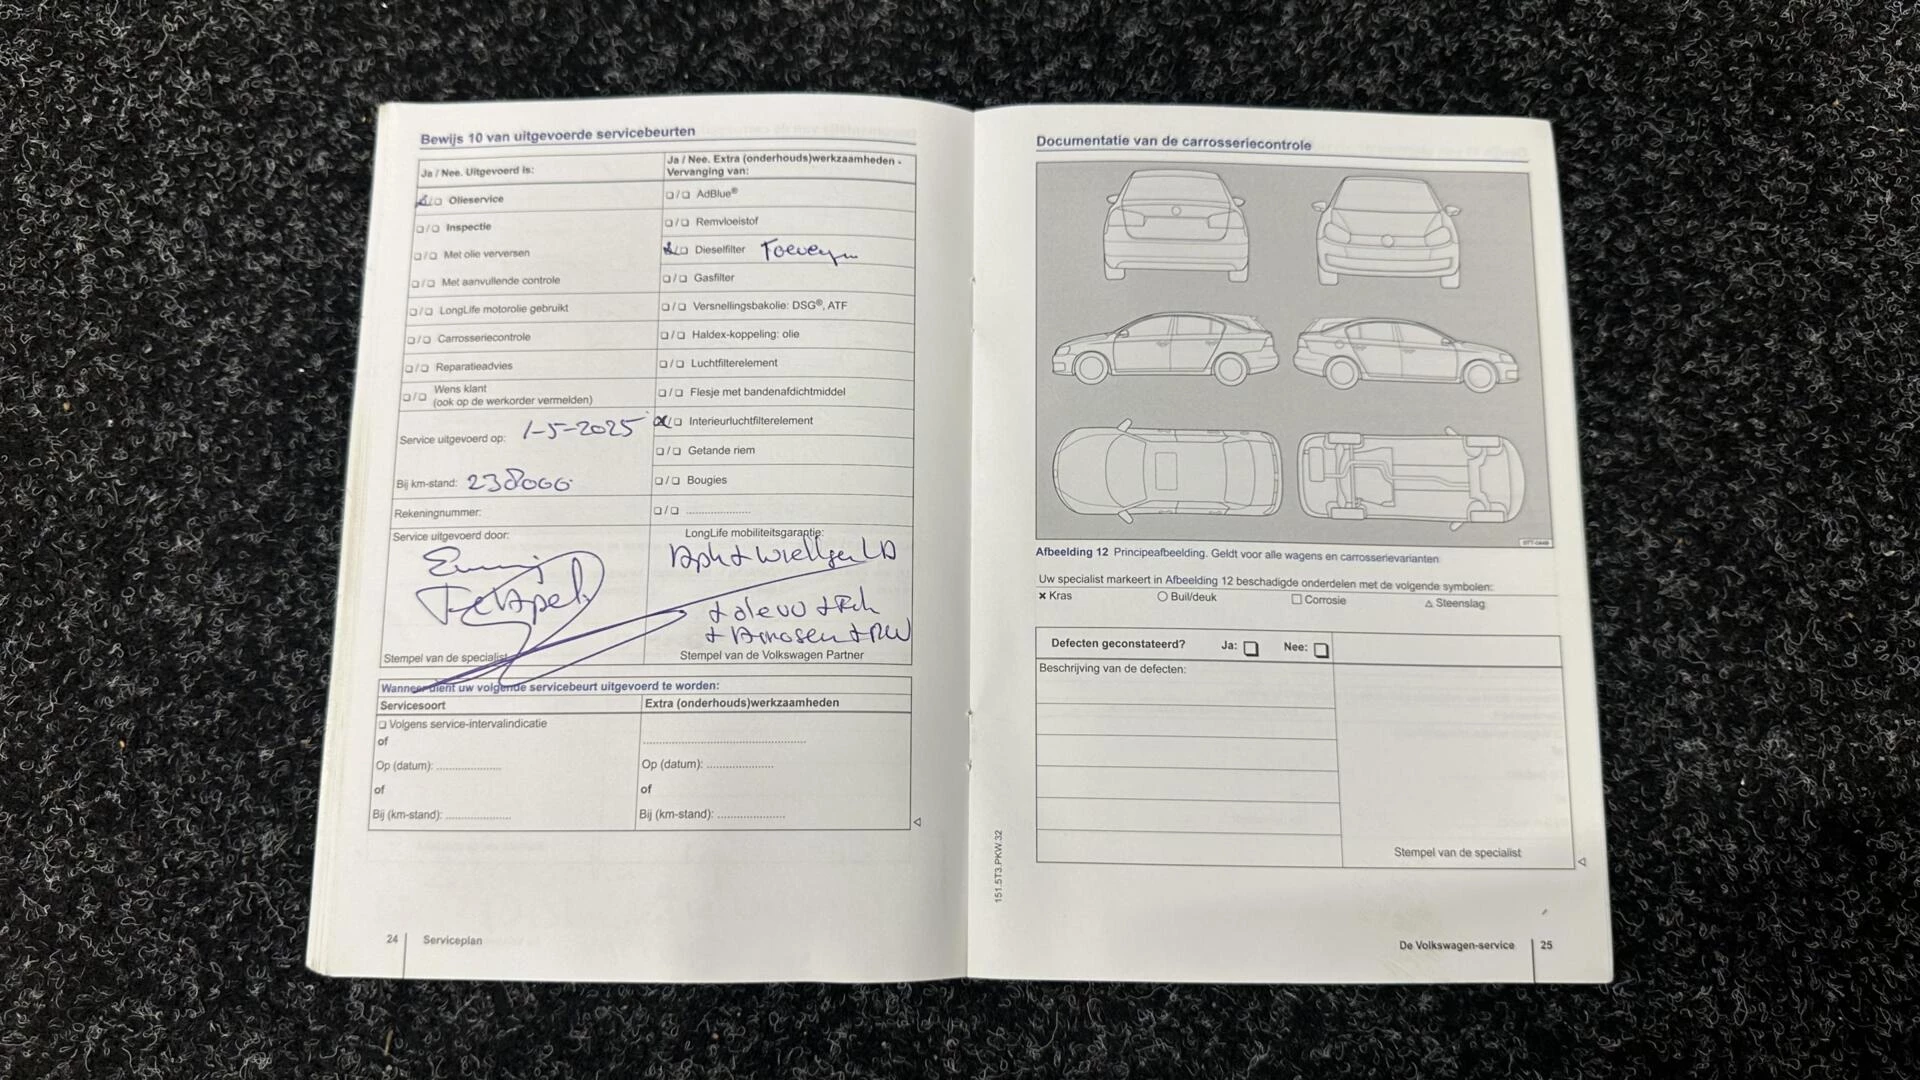 Bewijs 10 van uitgevoerde servicebeurten
Ja / Nee. Uitgevoerd is:
❑/❑ Olieservice
❑/❑ Inspectie
❑/❑ Met olie verversen
❑/❑ Met aanvullende controle
❑/❑ LongLife motorolie gebruikt
❑/❑ Carrosseriecontrole
❑/❑ Reparatieadvies
❑/❑ Wens klant
(ook op de werkorder vermelden)
Service uitgevoerd op: 1-5-2025
Bij km-stand: 238000
Rekeningnummer:
Service uitgevoerd door:
Stempel van de specialist
Ja / Nee. Extra (onderhouds)werkzaamheden -
Vervanging van:
❑/❑ AdBlue®
❑/❑ Remvloeistof
❑/❑ Dieselfilter
❑/❑ Gasfilter
❑/❑ Versnellingsbakolie: DSG®, ATF
❑/❑ Haldex-koppeling: olie
❑/❑ Luchtfilterelement
❑/❑ Flesje met bandenafdichtmiddel
❑/❑ Interieurluchtfilterelement
❑/❑ Getande riem
❑/❑ Bougies
❑/❑ ....................
LongLife mobiliteitsgarantie:
Stempel van de Volkswagen Partner
Wanneer dient uw volgende servicebeurt uitgevoerd te worden:
Servicesoort
❑ Volgens service-intervalindicatie
of
Op (datum): ....................
of
Bij (km-stand): ....................
Extra (onderhouds)werkzaamheden
..................................................
Op (datum): ....................
of
Bij (km-stand): ....................
24 Serviceplan
Documentatie van de carrosseriecontrole
Afbeelding 12 Principeafbeelding. Geldt voor alle wagens en carrosserievarianten
Uw specialist markeert in Afbeelding 12 beschadigde onderdelen met de volgende symbolen:
× Kras ○ Buil/deuk □ Corrosie △ Steenslag
Defecten geconstateerd? Ja: ❑ Nee: ❑
Beschrijving van de defecten:
Stempel van de specialist
151.5T3.PKW.32
De Volkswagen-service 25